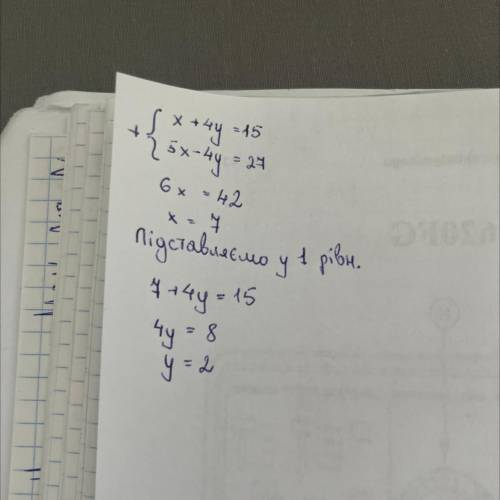 + { x + 4y = 15
5x - 4y = 27
6x = 42
x = 7
Підставляємо у 1 рівн.
7 + 4y = 15
4y = 8
y = 2